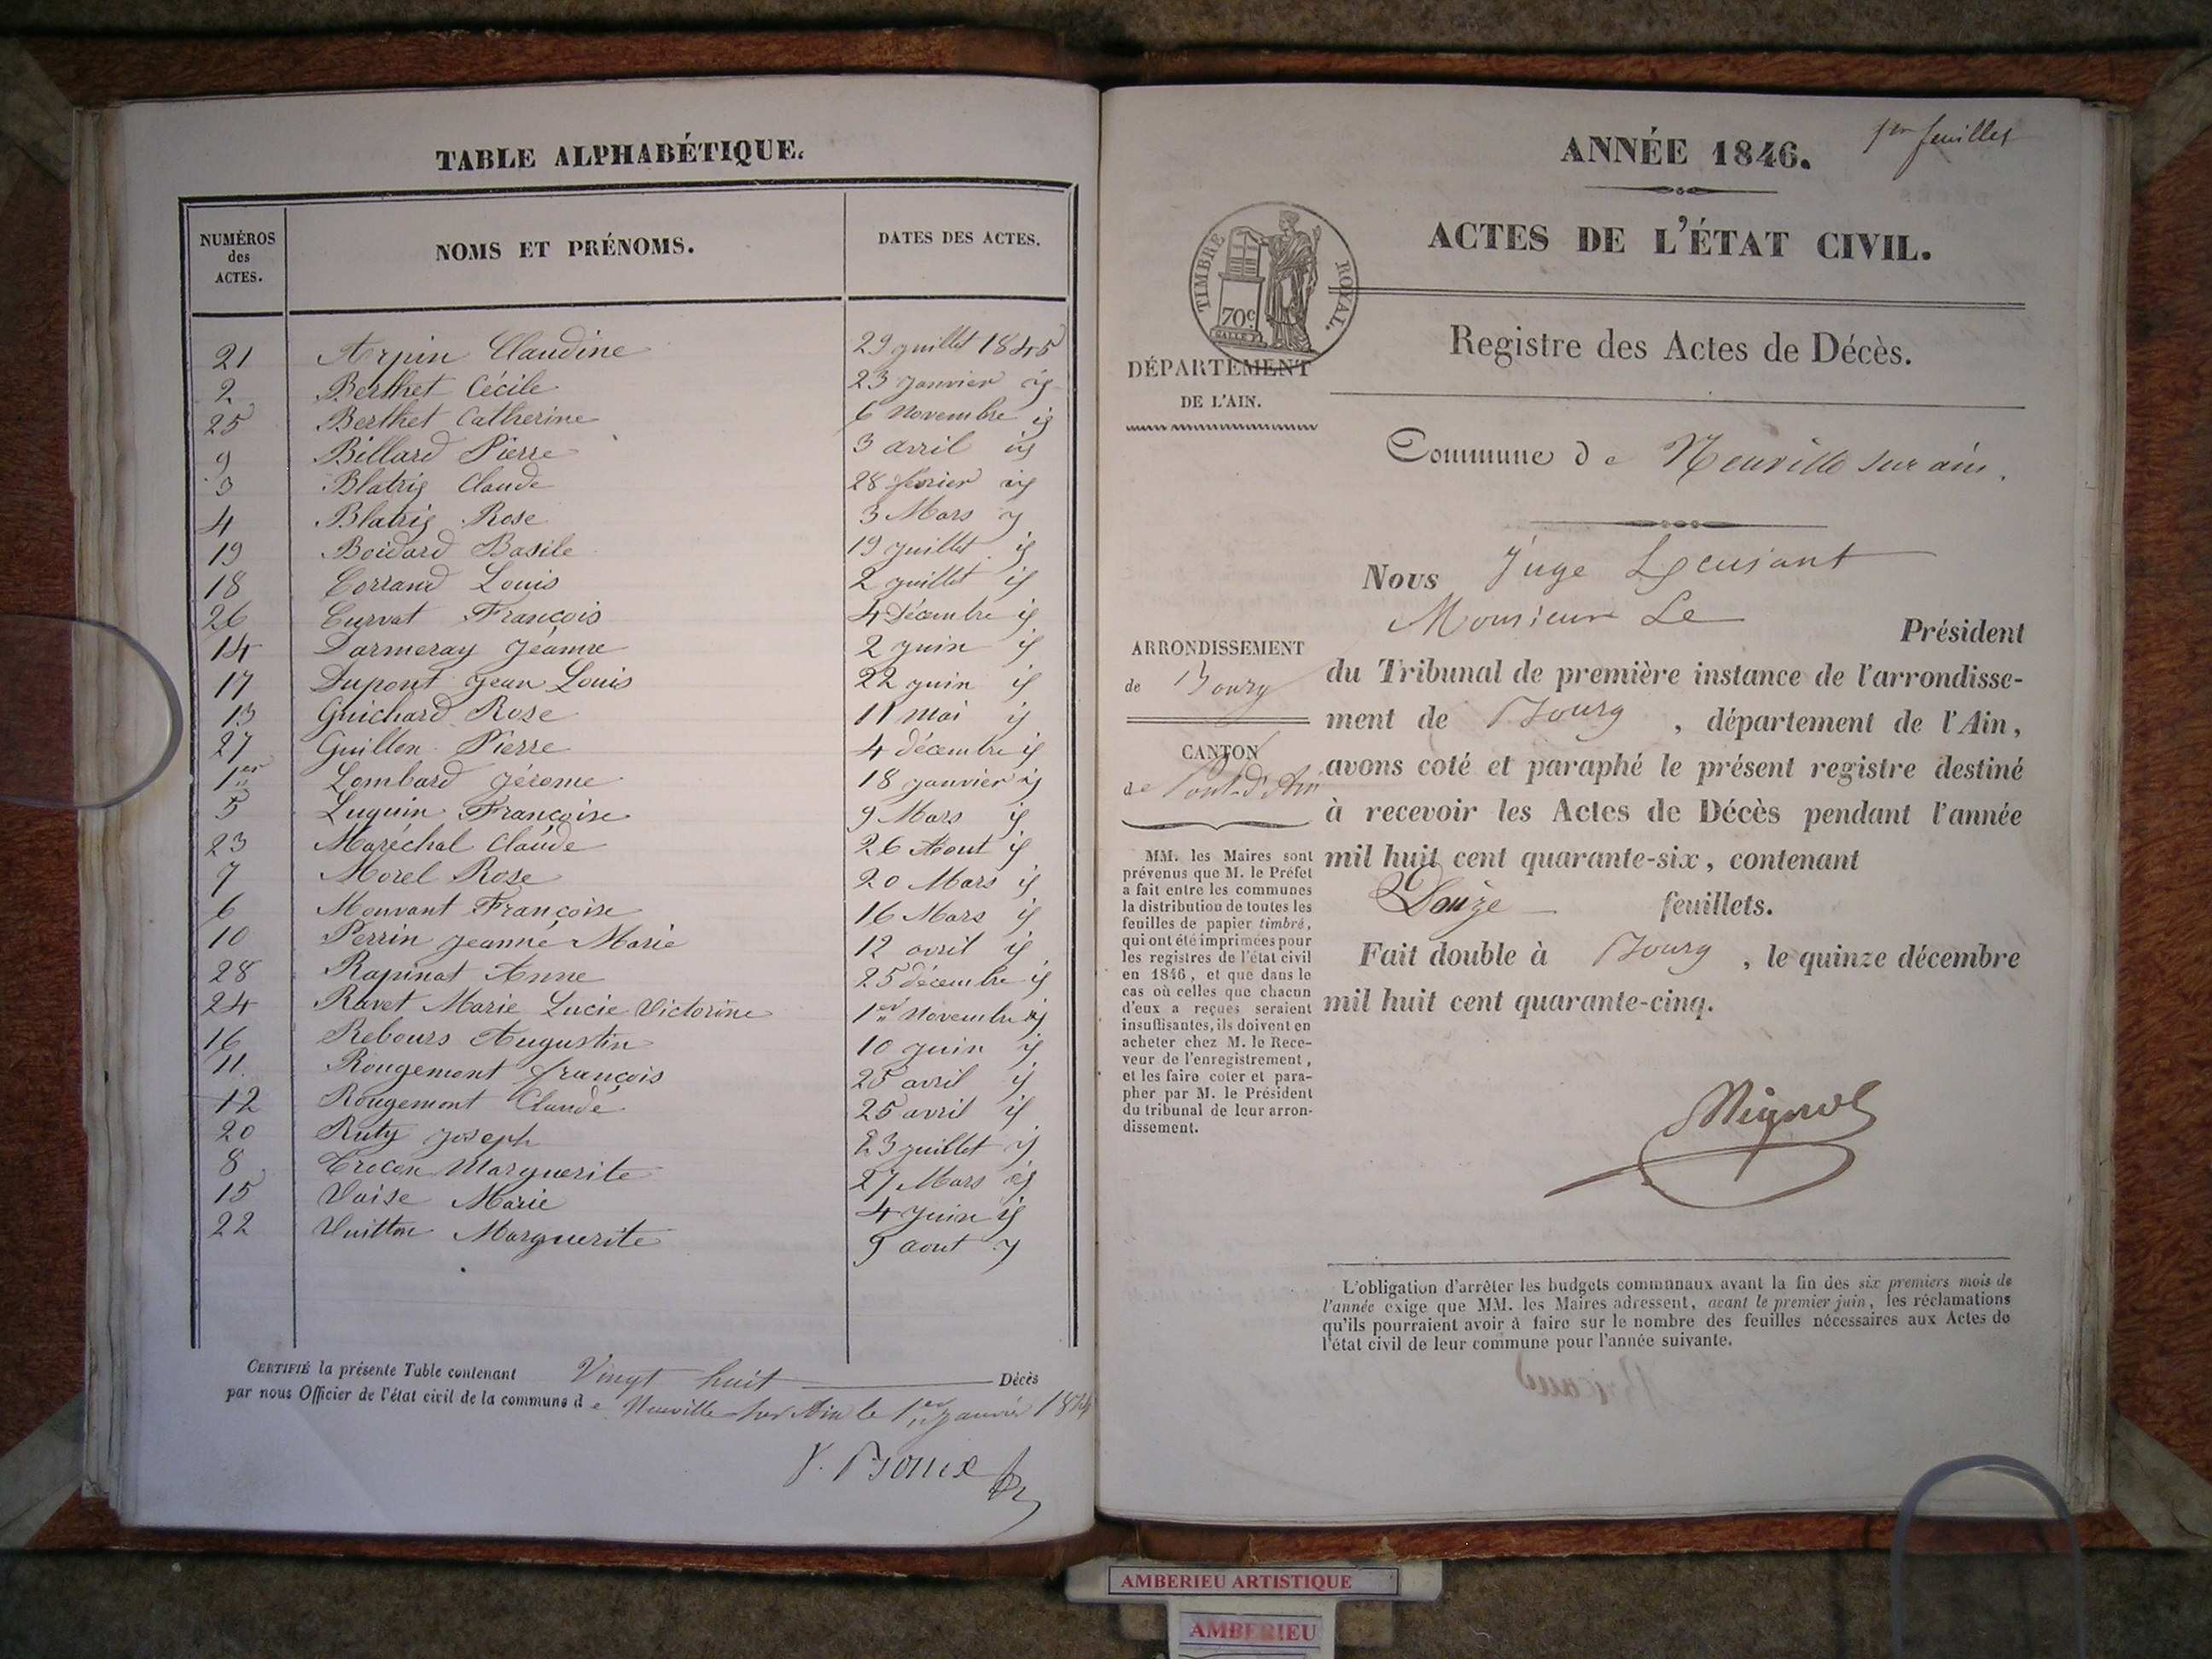 TABLE ALPHABÉTIQUE.
NUMÉROS des ACTES.
NOMS ET PRÉNOMS.
DATES DES ACTES.
21 Arpin Claudine 29 juillet 1845
2 Berthet Cécile 23 janvier id
25 Berthet Catherine 6 Novembre id
9 Billard Pierre 3 avril id
3 Blatrix Claude 28 février id
4 Blatrix Rose 3 Mars id
19 Boidard Basile 19 juillet id
18 Corrand Louis 2 juillet id
26 Curvat François 4 décembre id
14 Darmeray Jeanne 2 juin id
17 Dupont Jean Louis 22 juin id
13 Guichard Rose 11 Mai id
27 Guillon Pierre 4 décembre id
1er Lombard Jérome 18 janvier id
5 Luquin Françoise 9 Mars id
23 Maréchal Claude 26 Aout id
7 Morel Rose 20 Mars id
6 Mouvant Françoise 16 Mars id
10 Perrin Jeanne Marie 12 avril id
28 Rapinat Anne 25 décembre id
24 Ravet Marie Lucie Victorine 1er Novembre id
16 Rebours Augustin 10 juin id
11 Rougemont françois 25 avril id
12 Rougemont Claude 25 avril id
20 Ruty Joseph 23 juillet id
8 Trocon Marguerite 27 Mars id
15 Vaise Marie 4 juin id
22 Vuitton Marguerite 9 aout id
CERTIFIÉ la présente Table contenant Vingt huit Décès
par nous Officier de l'état civil de la commune de Neuville sur Ain le 1er janvier
1er feuillet
ANNÉE 1846.
ACTES DE L'ÉTAT CIVIL.
TIMBRE ROYAL.
70c
DÉPARTEMENT
DE L'AIN.
Registre des Actes de Décès.
Commune de Neuville sur ain.
Nous Juge
Monsieur Le Président
du Tribunal de première instance de l'arrondisse-
ment de Bourg, département de l'Ain,
avons coté et paraphé le présent registre destiné
à recevoir les Actes de Décès pendant l'année
mil huit cent quarante-six, contenant
Douze feuillets.
Fait double à Bourg, le quinze décembre
mil huit cent quarante-cinq.
ARRONDISSEMENT
de Bourg
CANTON
de Pont-d'Ain
MM. les Maires sont
prévenus que M. le Préfet
a fait entre les communes
la distribution de toutes les
feuilles de papier timbré,
qui ont été imprimées pour
les registres de l'état civil
en 1846, et que dans le
cas où celles que chacun
d'eux a reçues seraient
insuffisantes, ils doivent en
acheter chez M. le Rece-
veur de l'enregistrement,
et les faire coter et para-
pher par M. le Président
du tribunal de leur arron-
dissement.
L'obligation d'arrêter les budgets communaux avant la fin des six premiers mois de
l'année exige que MM. les Maires adressent, avant le premier juin, les réclamations
qu'ils pourraient avoir à faire sur le nombre des feuilles nécessaires aux Actes de
l'état civil de leur commune pour l'année suivante.
AMBERIEU ARTISTIQUE
AMBERIEU